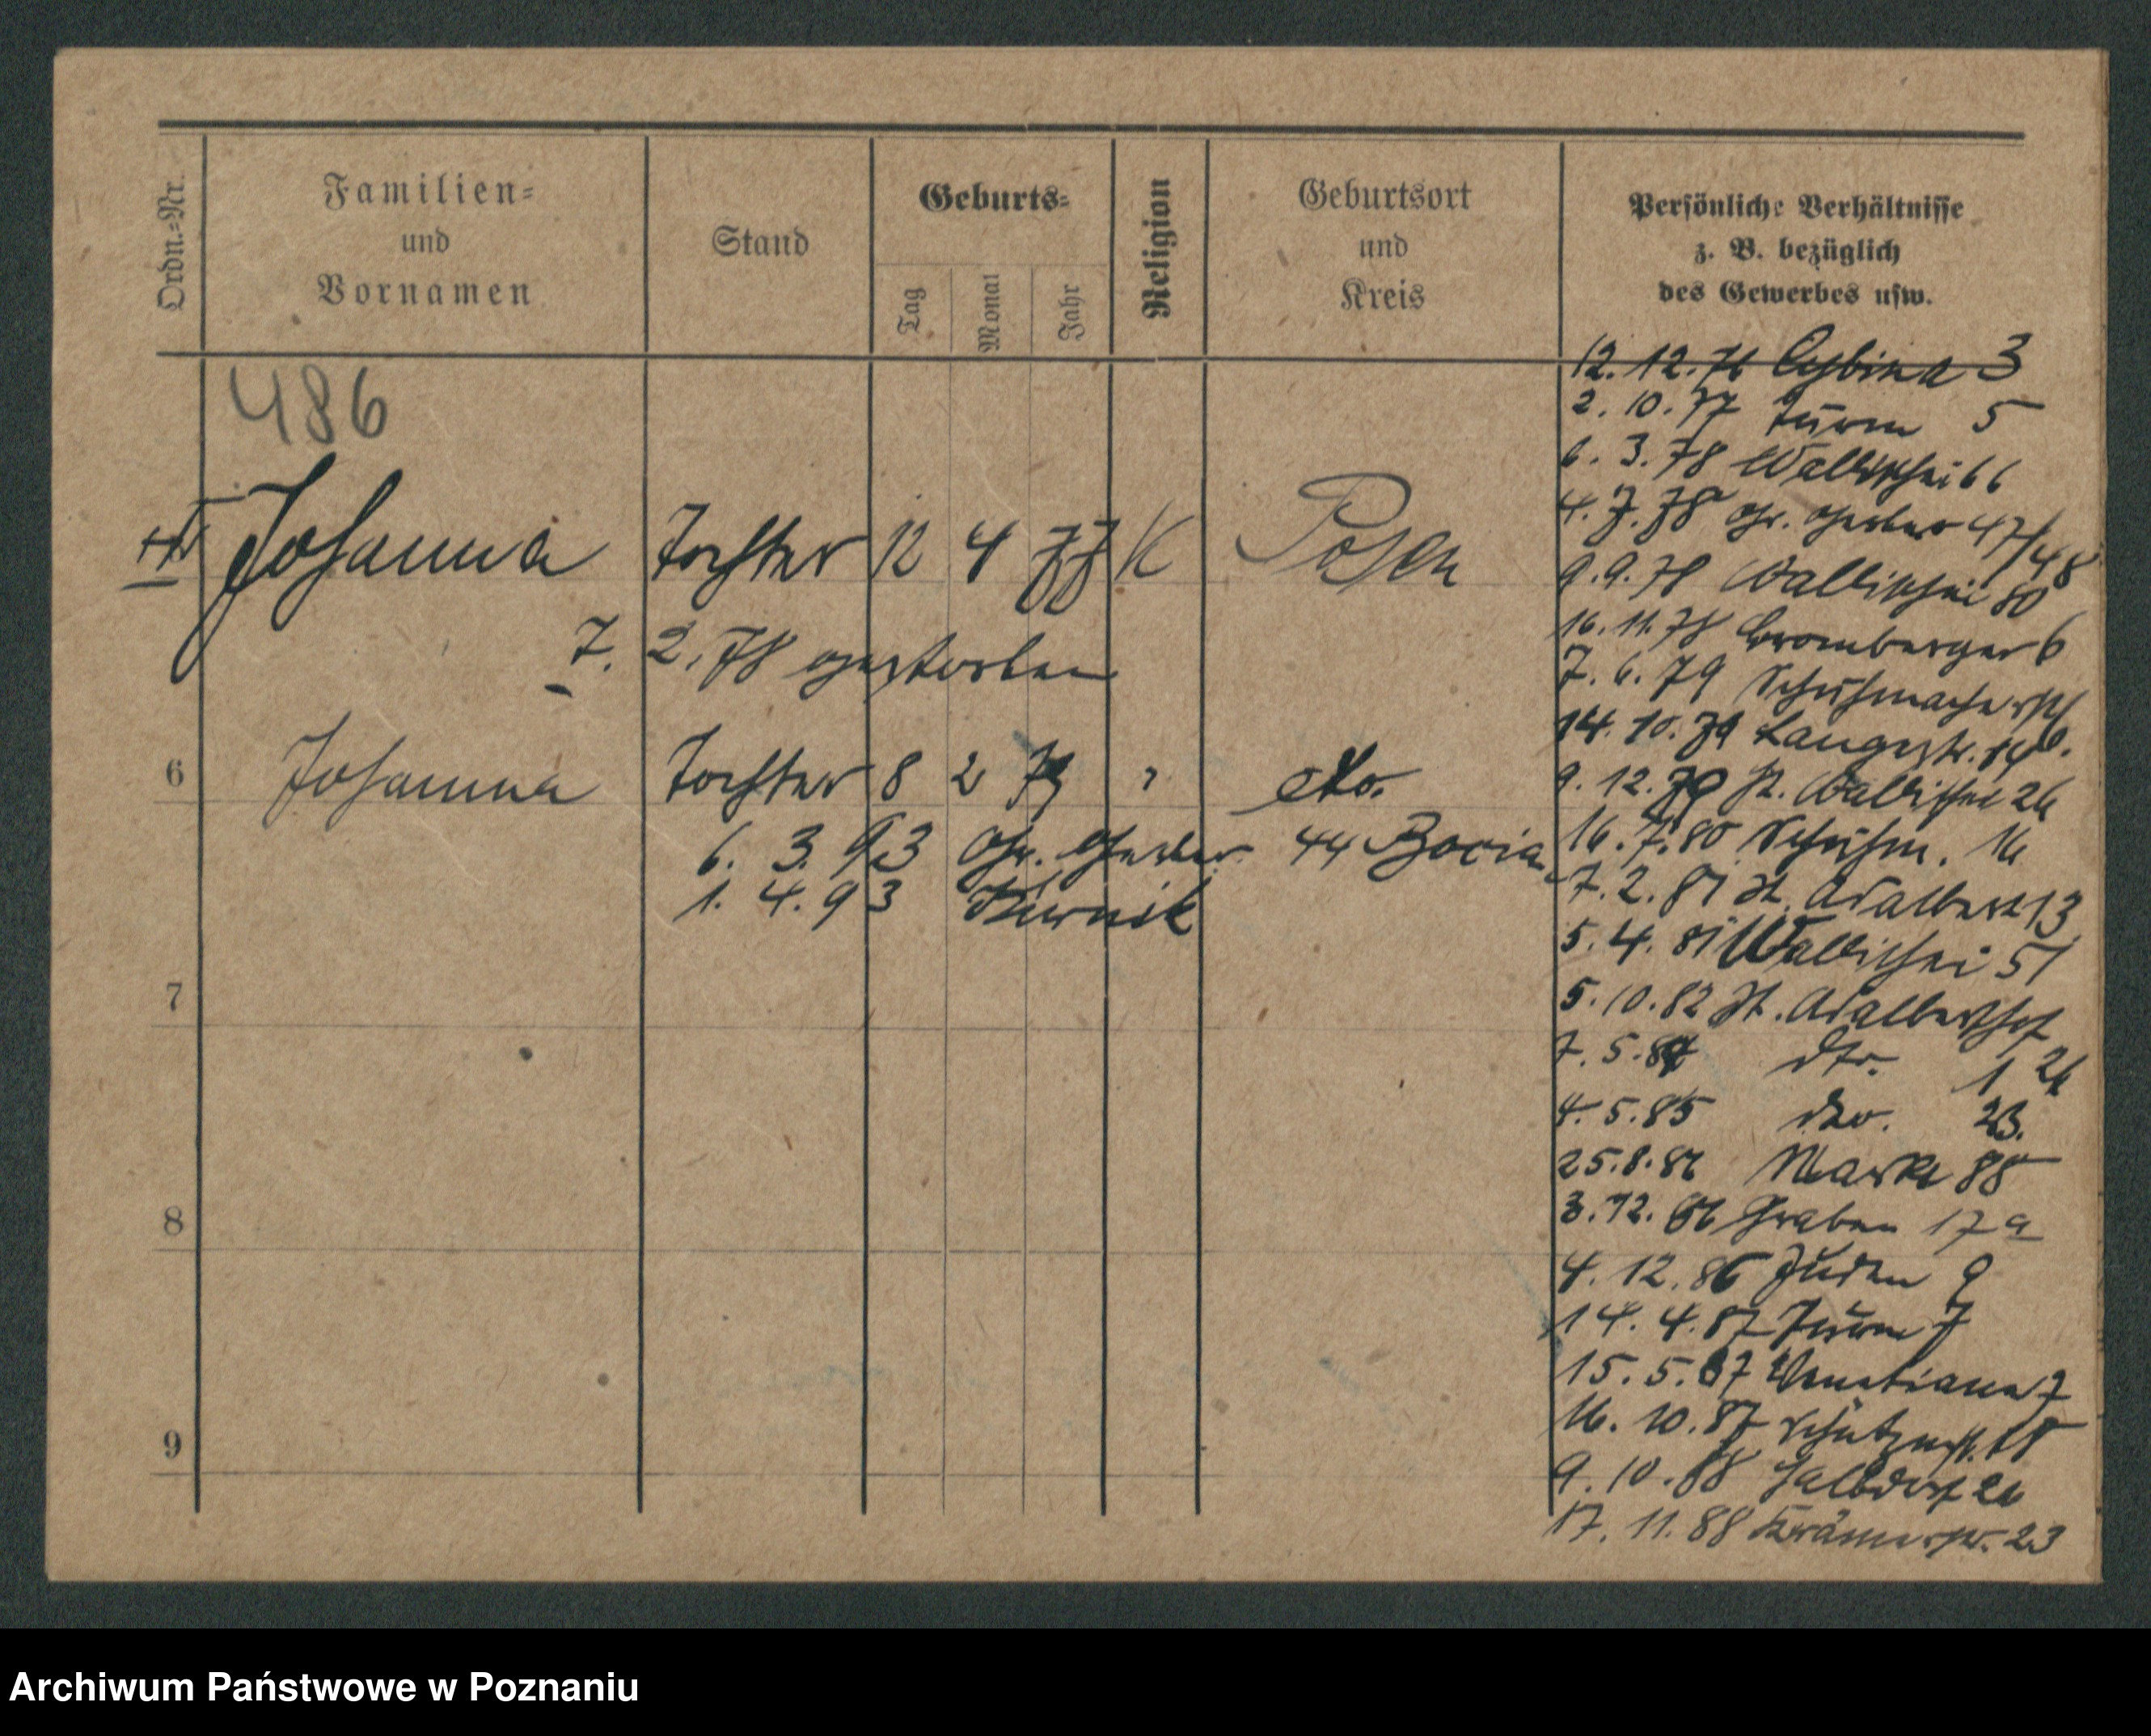 Ordn.-Nr.
Familien-
und
Vornamen
Stand
Geburts-
Tag
Monat
Jahr
Religion
Geburtsort
und
Kreis
Persönliche Verhältnisse
z. B. bezüglich
des Gewerbes usw.
486
Johanna Tochter 12 4 77 K Posen
7. 2. 78 gestorben
6 Johanna Tochter 8 2 79 " dto.
6. 3. 93 Gr. Gerber 44 Bocian
1. 4. 93 Kurnik
7
8
9
12. 12. 76 Cybina 3
2. 10. 77 Turm 5
6. 3. 78 Wallischei 66
4. 7. 78 Gr. Gerber 47/48
9. 9. 78 Wallischei 80
16. 11. 78 Bromberger 6
7. 6. 79 Schuhmacherstr. 6.
14. 10. 79 Langestr.
9. 12. 79 Wallischei 26
16. 7. 80 Schuhm. 16
7. 2. 81 St. Adalbert 13
5. 4. 81 Wallischei 51
5. 10. 82 St. Adalberthof
7. 5. 84 dto. 1 26
4. 5. 85 dto. 23.
25. 8. 86 Markt 88
3. 12. 86 Graben 17a
4. 12. 86 Juden 9
14. 4. 87 Turm 7
15. 5. 87 Venetianer 7
16. 10. 87 Schützenstr. 18
9. 10. 88 Halbdorf 26
17. 11. 88 Krämerstr. 23
Archiwum Państwowe w Poznaniu